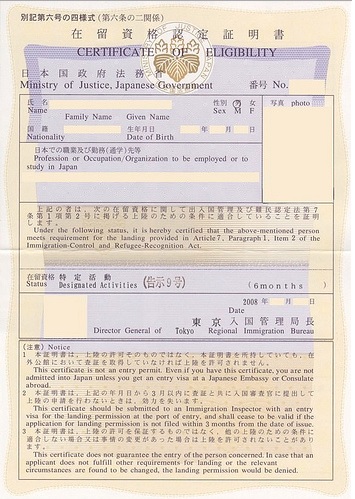 別記第六号の四様式（第六条の二関係）
在留資格認定証明書
CERTIFICATE OF ELIGIBILITY
日本国政府法務省
Ministry of Justice, Japanese Government 番号 No.
氏名 性別 男 女 写真 photo
Name Sex M F
Family Name Given Name
国籍 生年月日 年 月 日
Nationality Date of Birth
日本での職業及び勤務（通学）先等
Profession or Occupation/Organization to be employed or to
study in Japan
上記の者は、次の在留資格に関して出入国管理及び難民認定法第7
条第1項第2号に掲げる上陸のための条件に適合していることを証明
します。
Under the following status, it is hereby certified that the above-mentioned person
meets requirement for the landing provided in Article 7, Paragraph 1, Item 2 of the
Immigration-Control and Refugee-Recognition Act.
在留資格 特定活動 (告示9号)
Status Designated Activities (6months)
2008 年 月 日
Date
東京入国管理局長
Director General of Tokyo Regional Immigration Bureau
（注意）Notice
1 本証明書は、上陸の許可そのものではなく、本証明書を所持していても、在
外公館において査証を取得していなければ上陸を許可されません。
This certificate is not an entry permit. Even if you have this certificate, you are not
admitted into Japan unless you get an entry visa at a Japanese Embassy or Consulate
abroad.
2 本証明書は、上記の年月日から3月以内に査証と共に入国審査官に提出して
上陸の申請を行わないときは、効力を失います。
This certificate should be submitted to an Immigration Inspector with an entry
visa for the landing permission at the port of entry, and shall cease to be valid if the
application for landing permission is not filed within 3 months from the date of issue.
3 本証明書は、上陸の許可を保証するものではなく、他の上陸のための条件に
適合しない場合又は事情の変更があった場合は上陸を許可されないことがあり
ます。
This certificate does not guarantee the entry of the person concerned. In case that an
applicant does not fulfill other requirements for landing or the relevant
circumstances are found to be changed, the landing permission would be denied.